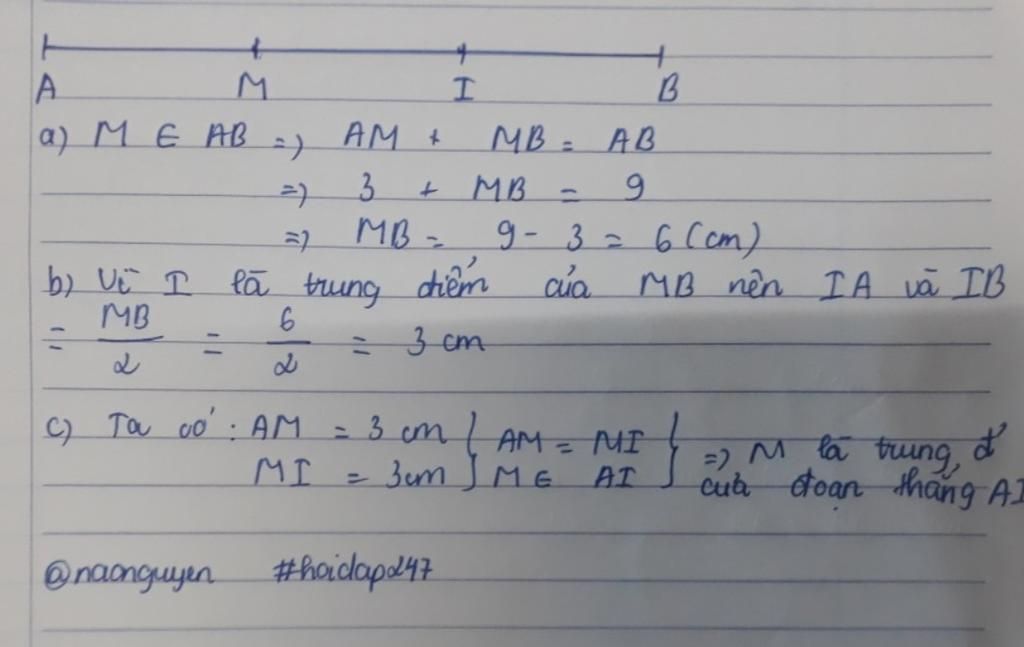 A M I B
a) M ∈ AB => AM + MB = AB
=> 3 + MB = 9
=> MB = 9 - 3 = 6 (cm)
b) Vì I là trung điểm của MB nên IA và IB
= MB/2 = 6/2 = 3 cm
c) Ta có: AM = 3 cm } AM = MI } => M là trung đ'
MI = 3cm } M ∈ AI } của đoạn thẳng AI
@naonguyen #hoidap247